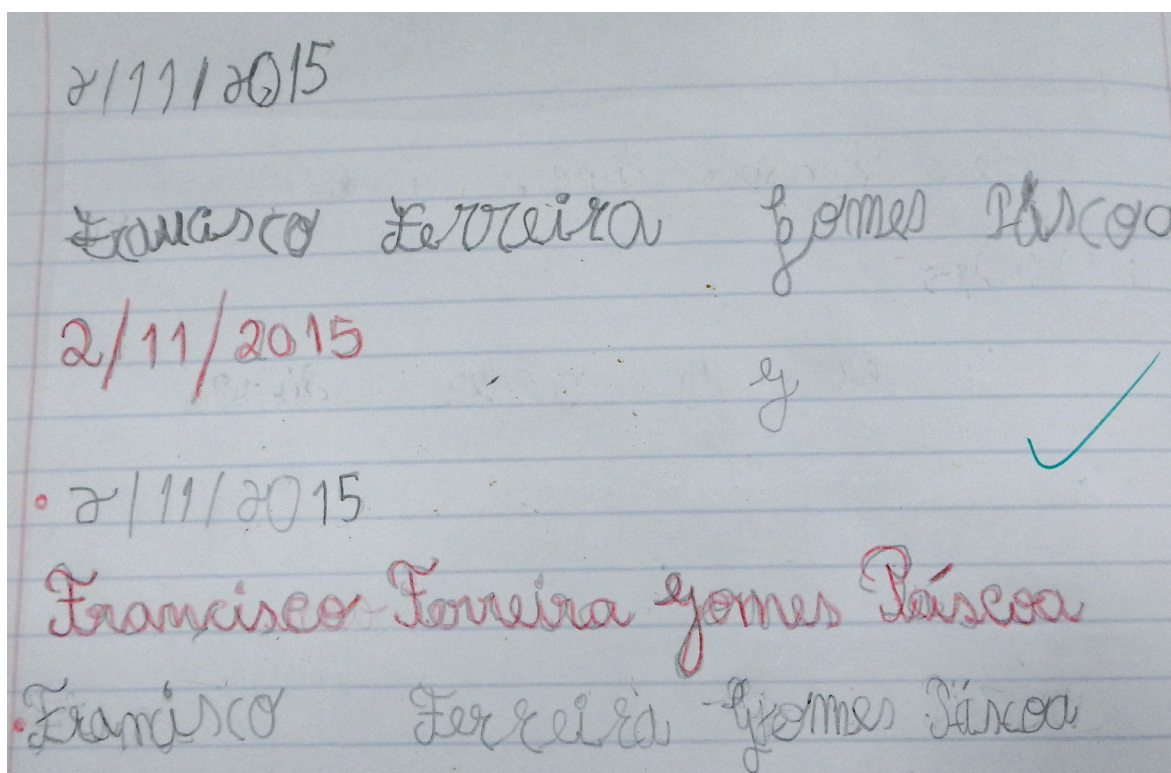 2/11/2015
Francisco Ferreira Gomes Páscoa
2/11/2015
G
2/11/2015
Francisco Ferreira Gomes Páscoa
Francisco Ferreira Gomes Páscoa